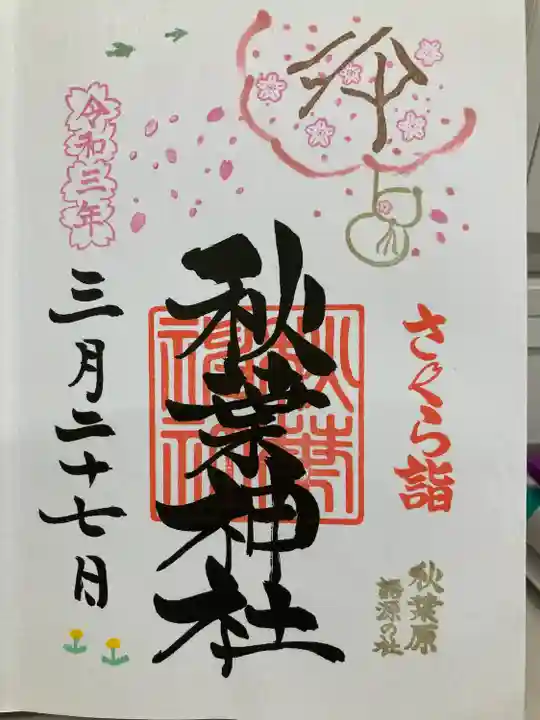 さくら詣
秋葉原
語源の社
秋葉神社
秋葉神社
令和三年
三月二十七日